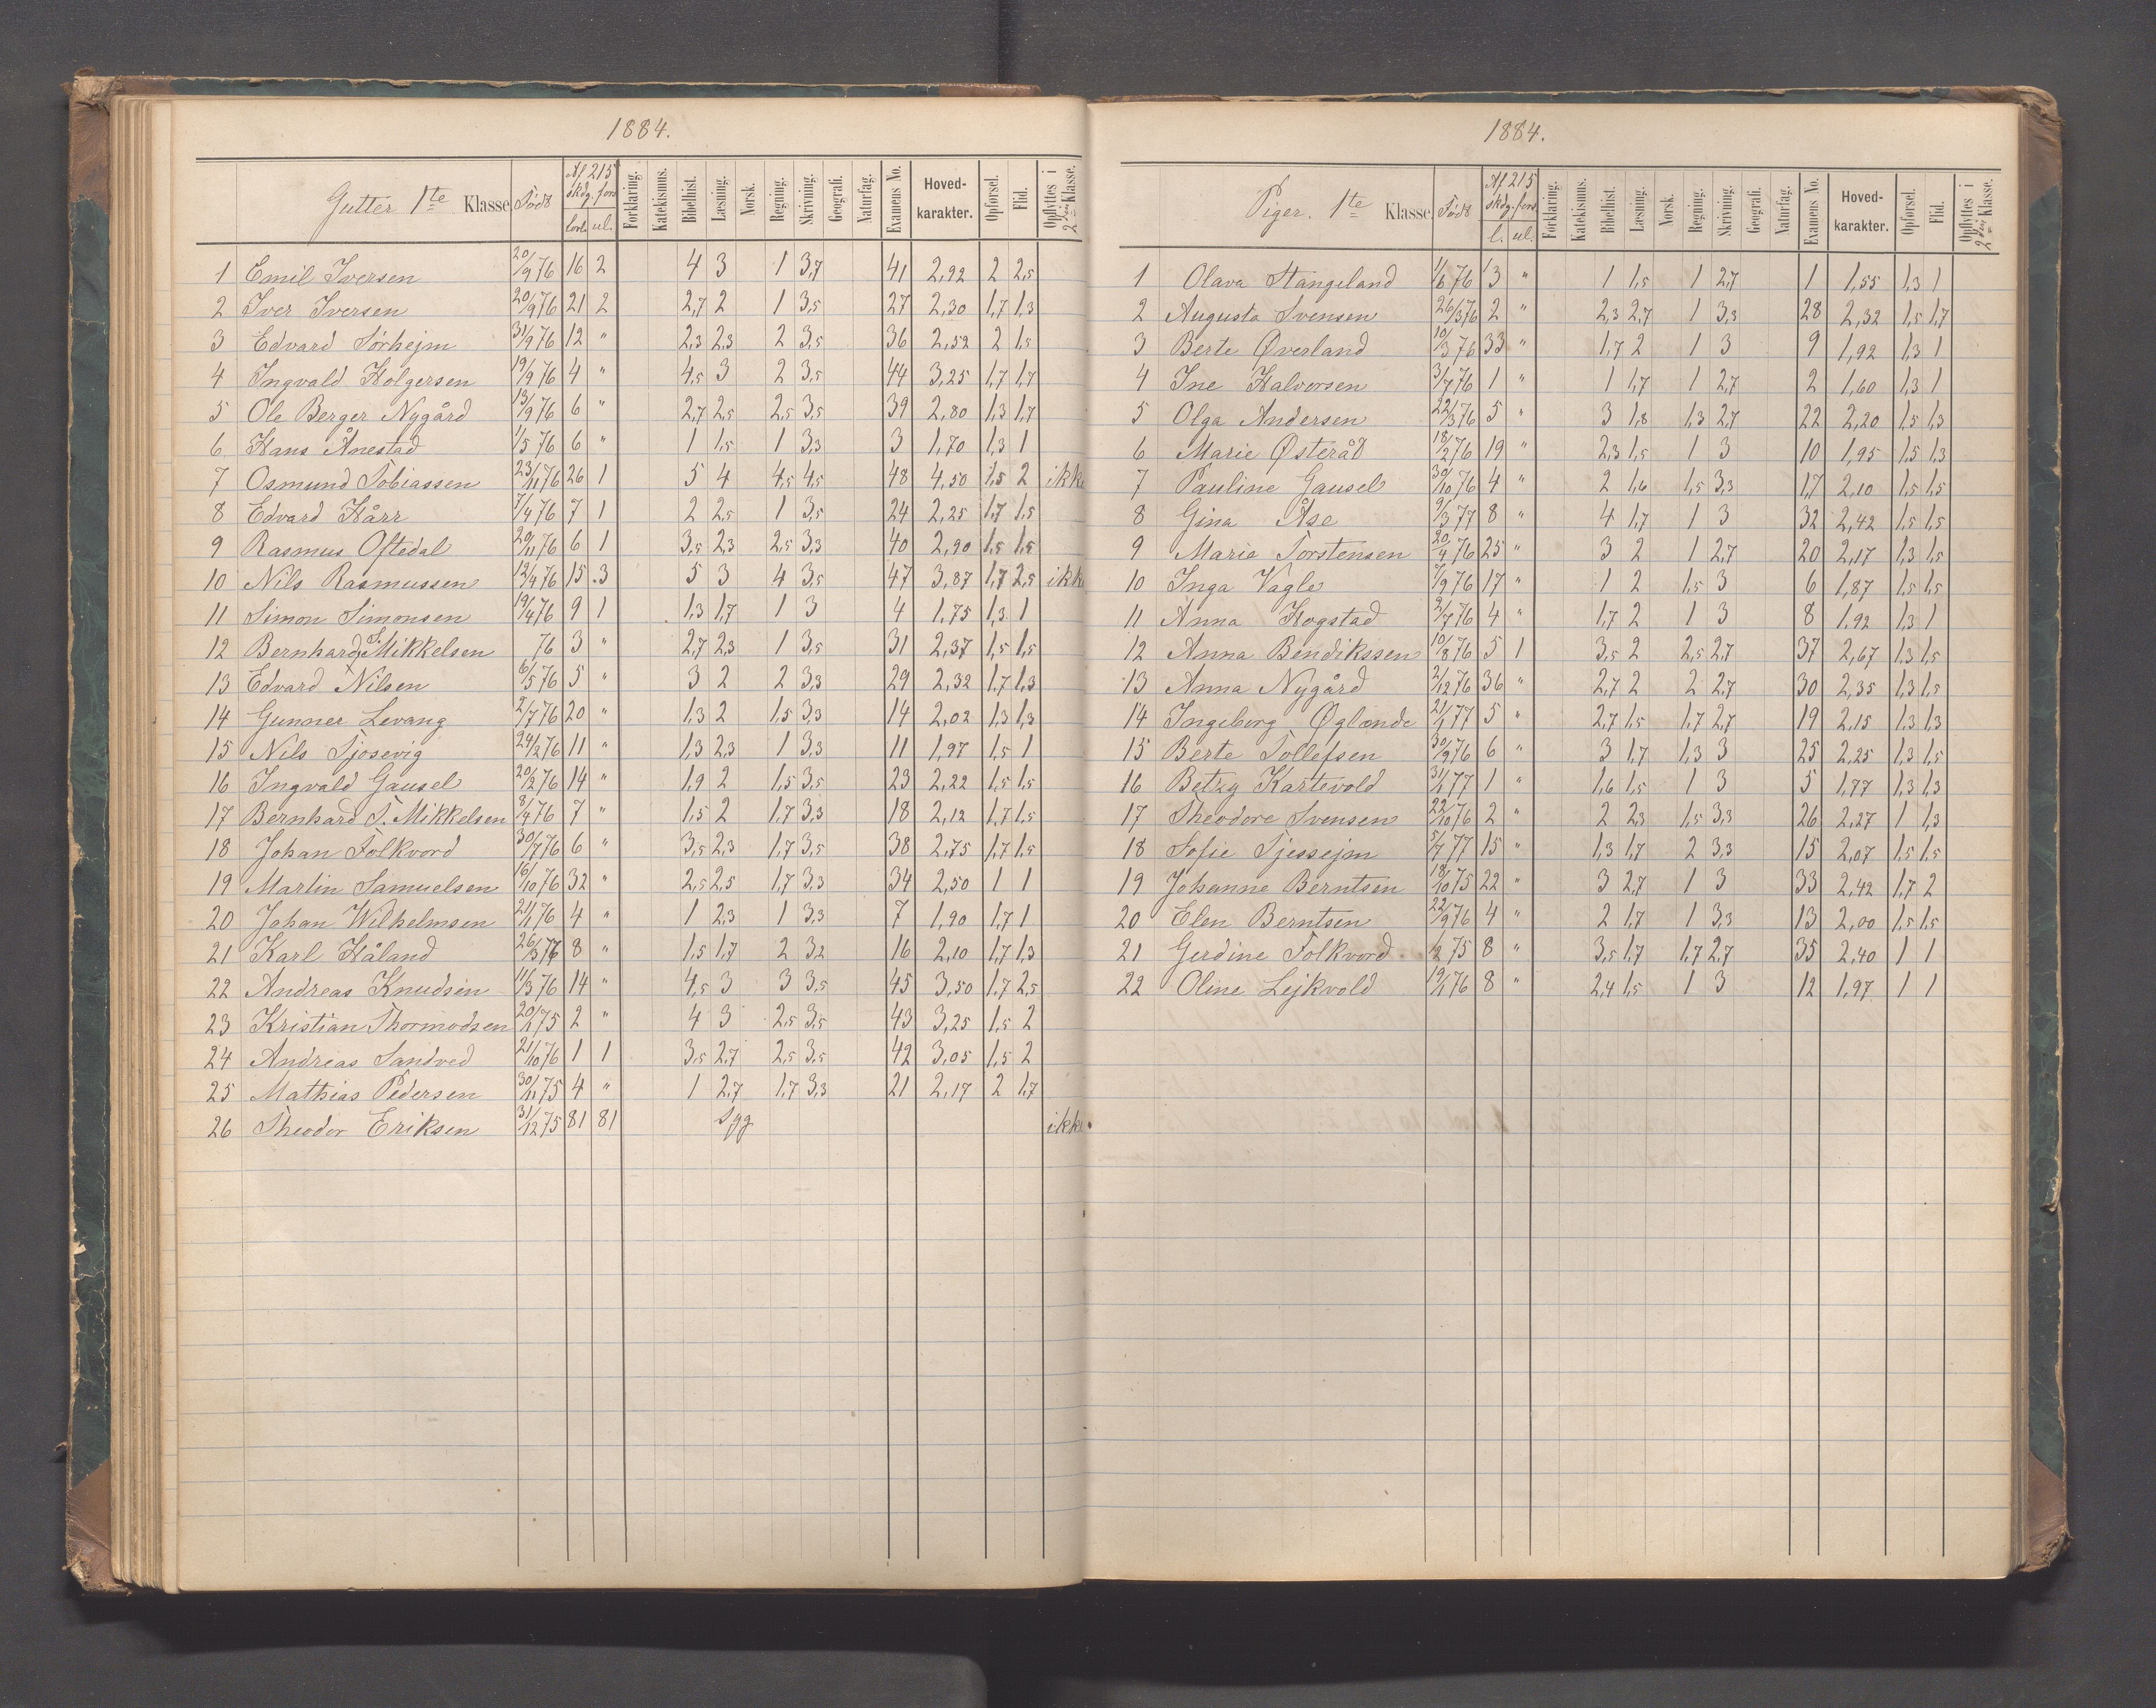 1884.
Gutter 1te Klasse. Født Af 215 skdg. fors. lovl. ul. Forklaring. Katekismus. Bibelhist. Læsning. Norsk. Regning. Skrivning. Geografi. Naturfag. Examens No. Hoved-karakter. Opførsel. Flid. Opflyttes i 2den Klasse.
1 Emil Iversen 20/9 76 16 2 4 3 1 3,7 41 2,92 2 2,5
2 Iver Iversen 20/9 76 21 2 2,7 2 1 3,5 27 2,30 1,7 1,3
3 Edvard Sørhejm 31/9 76 12 " 2,3 2,3 2 3,5 36 2,52 2 1,5
4 Ingvald Holgersen 19/9 76 4 " 4,5 3 2 3,5 44 3,25 1,7 1,7
5 Ole Berger Nygård 13/9 76 6 " 2,7 2,5 2,5 3,5 39 2,80 1,3 1,7
6 Hans Ånestad 1/5 76 6 " 1 1,5 1 3,3 3 1,70 1,3 1
7 Osmund Tobiassen 23/11 76 26 1 5 4 4,5 4,5 48 4,50 1,5 2 ikke
8 Edvard Hårr 7/4 76 7 1 2 2,5 1 3,5 24 2,25 1,7 1,5
9 Rasmus Oftedal 29/11 76 6 1 3,5 2,3 2,5 3,3 40 2,90 1,5 1,5
10 Nils Rasmussen 12/4 76 15 3 5 3 4 3,5 47 3,87 1,7 2,5 ikke
11 Simon Simonsen 19/4 76 9 1 1,3 1,7 1 3 4 1,75 1,3 1
12 Bernhard S. Mikkelsen 76 3 " 2,7 2,3 1 3,5 31 2,37 1,5 1,5
13 Edvard Nilsen 6/5 76 5 " 3 2 2 3,3 29 2,32 1,7 1,3
14 Gunner Levang 2/7 76 20 " 1,3 2 1,5 3,3 14 2,02 1,3 1,3
15 Nils Tjosevig 24/2 76 11 " 1,3 2,3 1 3,3 11 1,97 1,5 1
16 Ingvald Gausel 20/2 76 14 " 1,9 2 1,5 3,5 23 2,22 1,5 1,5
17 Bernhard T. Mikkelsen 8/4 76 7 " 1,5 2 1,7 3,3 18 2,12 1,7 1,5
18 Johan Folkvord 30/7 76 6 " 3,5 2,3 1,7 3,5 38 2,75 1,7 1,5
19 Martin Samuelsen 16/10 76 32 " 2,5 2,5 1,7 3,3 34 2,50 1 1
20 Johan Wilhelmsen 21/1 76 4 " 1 2,3 1 3,3 7 1,90 1,7 1
21 Karl Håland 26/3 77 8 " 1,5 1,7 2 3,2 16 2,10 1,7 1,3
22 Andreas Knudsen 11/3 76 14 " 4,5 3 3 3,5 45 3,50 1,7 2,5
23 Kristian Thormodsen 20/1 75 2 " 4 3 2,5 3,5 43 3,25 1,5 2
24 Andreas Sandved 21/10 76 1 1 3,5 2,7 2,5 3,5 42 3,05 1,5 2
25 Mathias Pedersen 30/11 75 4 " 1 2,7 1,7 3,3 21 2,17 2 1,7
26 Theodor Eriksen 31/12 75 81 81 Syg ikke
1884.
Piger. 1te Klasse. Født Af 215 skdg. fors. l. ul. Forklaring. Katekismus. Bibelhist. Læsning. Norsk. Regning. Skrivning. Geografi. Naturfag. Examens No. Hoved-karakter. Opførsel. Flid. Opflyttes i 2den Klasse.
1 Olava Stangeland 1/6 76 3 " 1 1,5 1 2,7 1 1,55 1,3 1
2 Augusta Svensen 26/3 76 2 " 2,3 2,7 1 3,3 28 2,32 1,5 1,7
3 Berte Øverland 10/3 76 33 " 1,7 2 1 3 9 1,92 1,3 1
4 Ine Halvorsen 3/7 76 1 " 1 1,7 1 2,7 2 1,60 1,3 1
5 Olga Andersen 22/3 76 5 " 3 1,8 1,3 2,7 22 2,20 1,5 1,3
6 Marie Østeråd 18/2 76 19 " 2,3 1,5 1 3 10 1,95 1,5 1,3
7 Pauline Gausel 30/10 76 4 " 2 1,6 1,5 3,3 17 2,10 1,5 1,5
8 Gina Åse 9/3 77 8 " 4 1,7 1 3 32 2,42 1,5 1,5
9 Marie Torstensen 20/4 76 25 " 3 2 1 2,7 20 2,17 1,3 1,5
10 Inga Vagle 7/9 76 17 " 1 2 1,5 3 6 1,87 1,5 1,5
11 Anna Hogstad 2/7 76 4 " 1,7 2 1 3 8 1,92 1,3 1
12 Anna Bendikssen 10/8 76 5 1 3,5 2 2,5 2,7 37 2,67 1,3 1,5
13 Anna Nygård 2/12 76 36 " 2,7 2 2 2,7 30 2,35 1,3 1,5
14 Ingeborg Øglænde 21/1 77 5 " 2,7 1,5 1,7 2,7 19 2,15 1,3 1,3
15 Berte Tollefsen 30/9 76 6 " 3 1,7 1,3 3 25 2,25 1,3 1,5
16 Betzy Kartevold 31/1 77 1 " 1,6 1,5 1 3 5 1,77 1,3 1,3
17 Theodore Svensen 22/10 76 2 " 2 2,3 1,5 3,3 26 2,27 1 1,3
18 Sofie Tjessejm 5/7 77 15 " 1,3 1,7 2 3,3 15 2,07 1,5 1,5
19 Johanne Berntsen 18/10 75 22 " 3 2,7 1 3 33 2,42 1,7 2
20 Elen Berntsen 22/9 76 4 " 2 1,7 1 3,3 13 2,00 1,5 1,5
21 Gerdine Folkvord 1/2 75 8 " 3,5 1,7 1,7 2,7 35 2,40 1 1
22 Oline Lejkvold 19/1 76 8 " 2,4 1,5 1 3 12 1,97 1 1